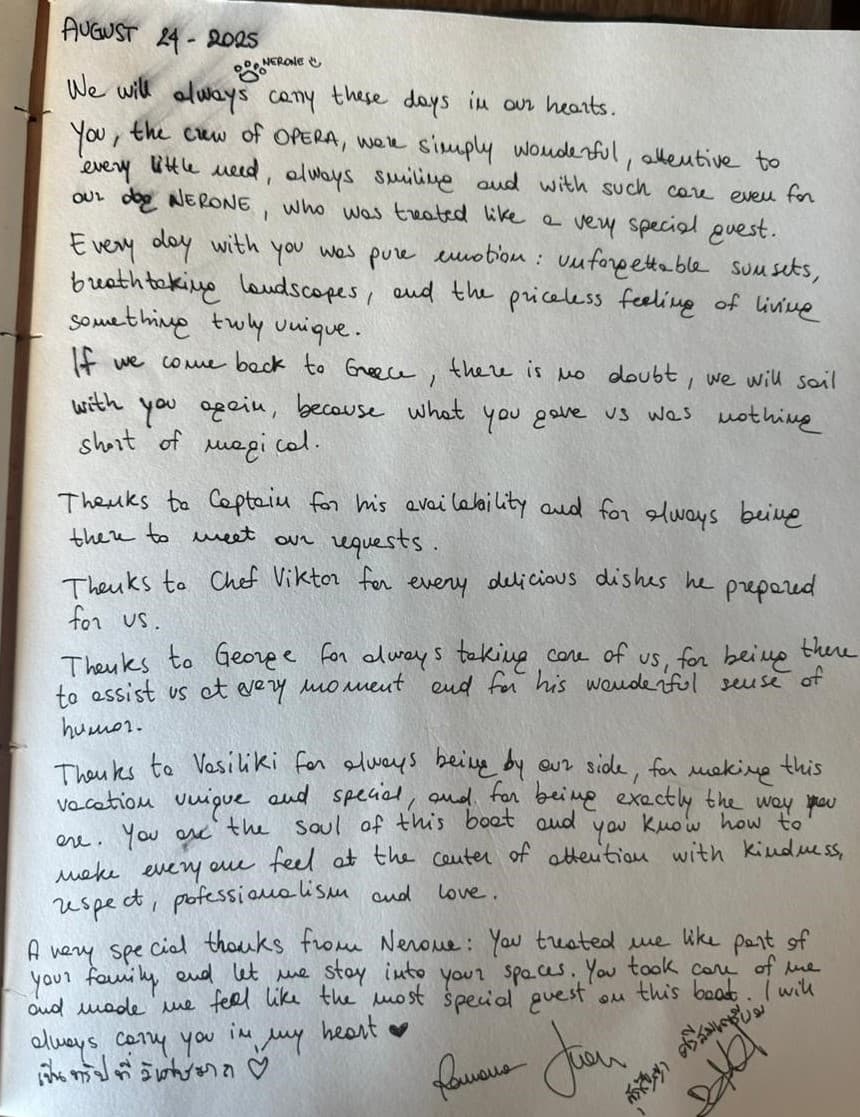 AUGUST 24 - 2025
NERONE
We will always carry these days in our hearts.
You, the crew of OPERA, were simply wonderful, attentive to
every little need, always smiling and with such care even for
our dog NERONE, who was treated like a very special guest.
Every day with you was pure emotion: unforgettable sunsets,
breathtaking landscapes, and the priceless feeling of living
something truly unique.
If we come back to Greece, there is no doubt, we will sail
with you again, because what you gave us was nothing
short of magical.
Thanks to Captain for his availability and for always being
there to meet our requests.
Thanks to Chef Viktor for every delicious dishes he prepared
for us.
Thanks to George for always taking care of us, for being there
to assist us at every moment and for his wonderful sense of
humor.
Thanks to Vasiliki for always being by our side, for making this
vacation unique and special, and for being exactly the way you
are. You are the soul of this boat and you know how to
make everyone feel at the center of attention with kindness,
respect, pofessionalism and love.
A very special thanks from Nerone: You treated me like part of
your family and let me stay into your spaces. You took care of me
and made me feel like the most special guest on this boat. I will
always carry you in my heart ♥
เป็นทริปที่วิเศษมาก ♡
Romano Juan